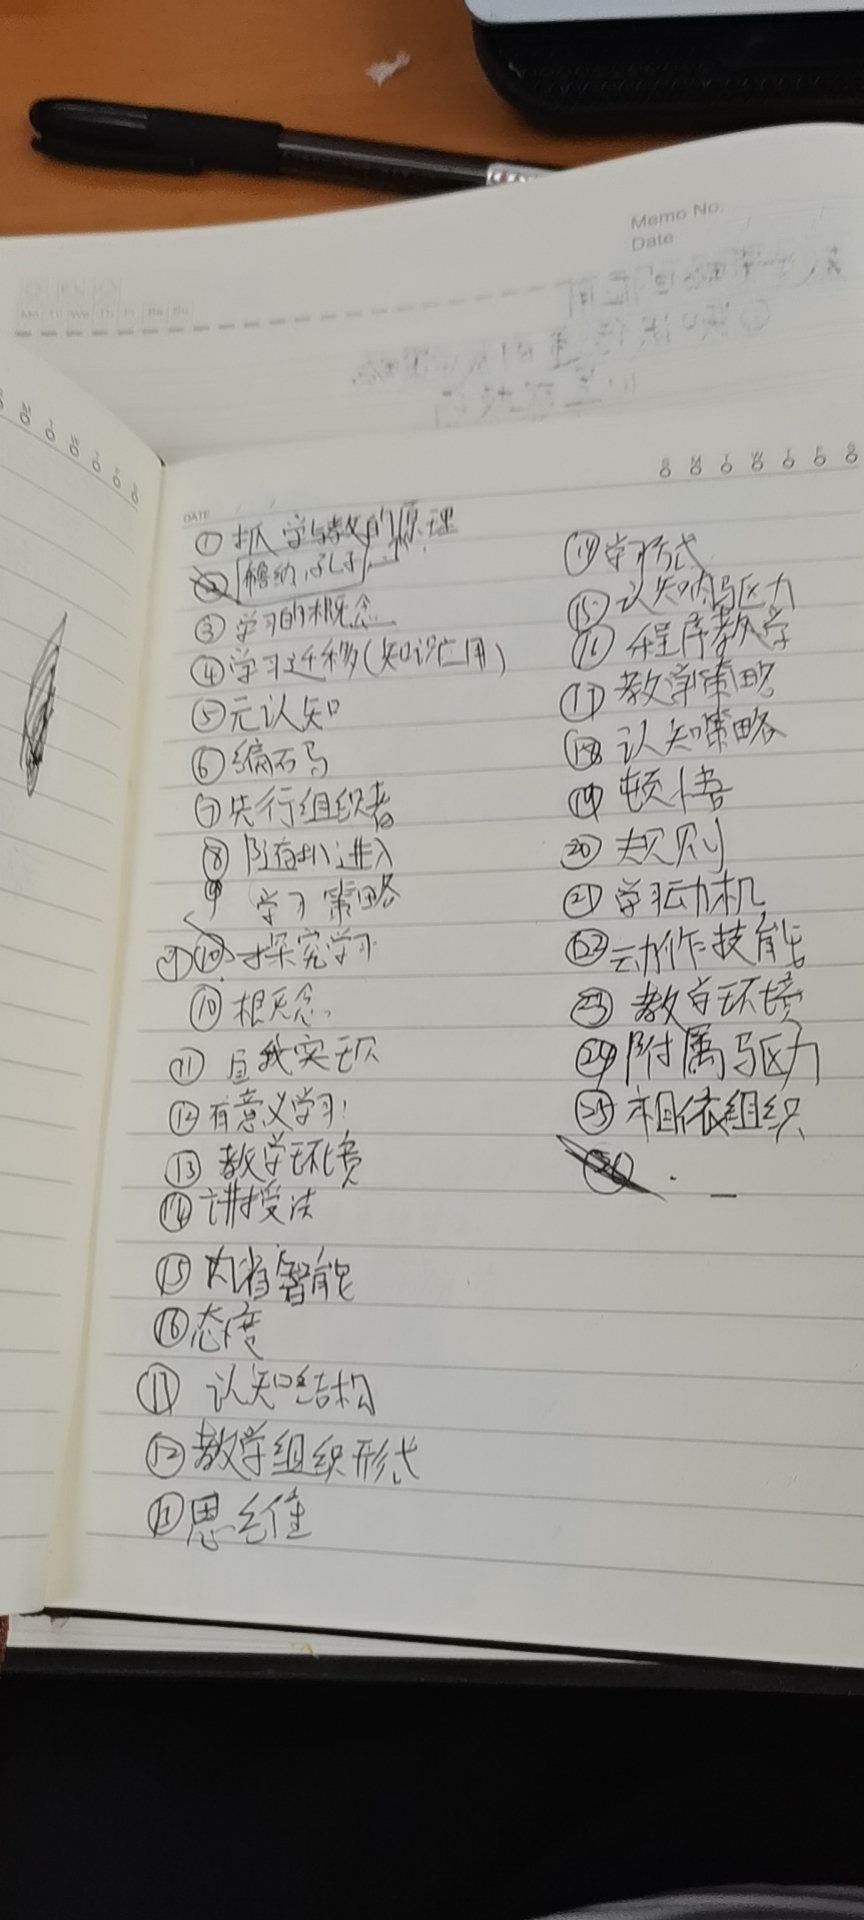 Memo No.
Date
DATE
① 抓 学与教的原理
③ 学习的概念
④ 学习迁移(知识应用)
⑤ 元认知
⑥ 编码
⑦ 先行组织者
⑧ 随机进入
学习策略
⑨ ⑩ 探究学习
⑩ 概念
⑪ 自我实现
⑫ 有意义学习
⑬ 教学环境
⑭ 讲授法
⑮ 内省智能
⑯ 态度
⑪ 认知结构
⑫ 教学组织形式
⑬ 思维
⑭ 学习形式
⑮ 认知内驱力
⑯ 程序教学
⑰ 教学策略
⑱ 认知策略
⑲ 顿悟
⑳ 规则
㉑ 学习动机
㉒ 动作技能
㉓ 教育环境
㉔ 附属驱力
㉕ 相依组织
㉖